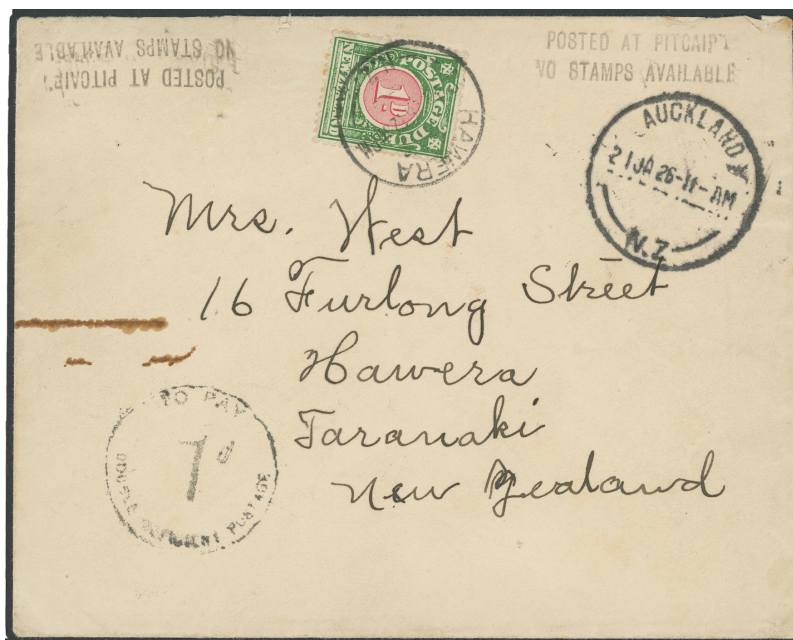 POSTED AT PITCAIRN
NO STAMPS AVAILABLE
POSTED AT PITCAIRN
NO STAMPS AVAILABLE
POSTAGE DUE
1D
NEW ZEALAND
HAWERA
AUCKLAND
21 JA 26-11-AM
N.Z.
Mrs. West
16 Furlong Street
Hawera
Taranaki
New Zealand
TO PAY
1d
DOUBLE DEFICIENT POSTAGE